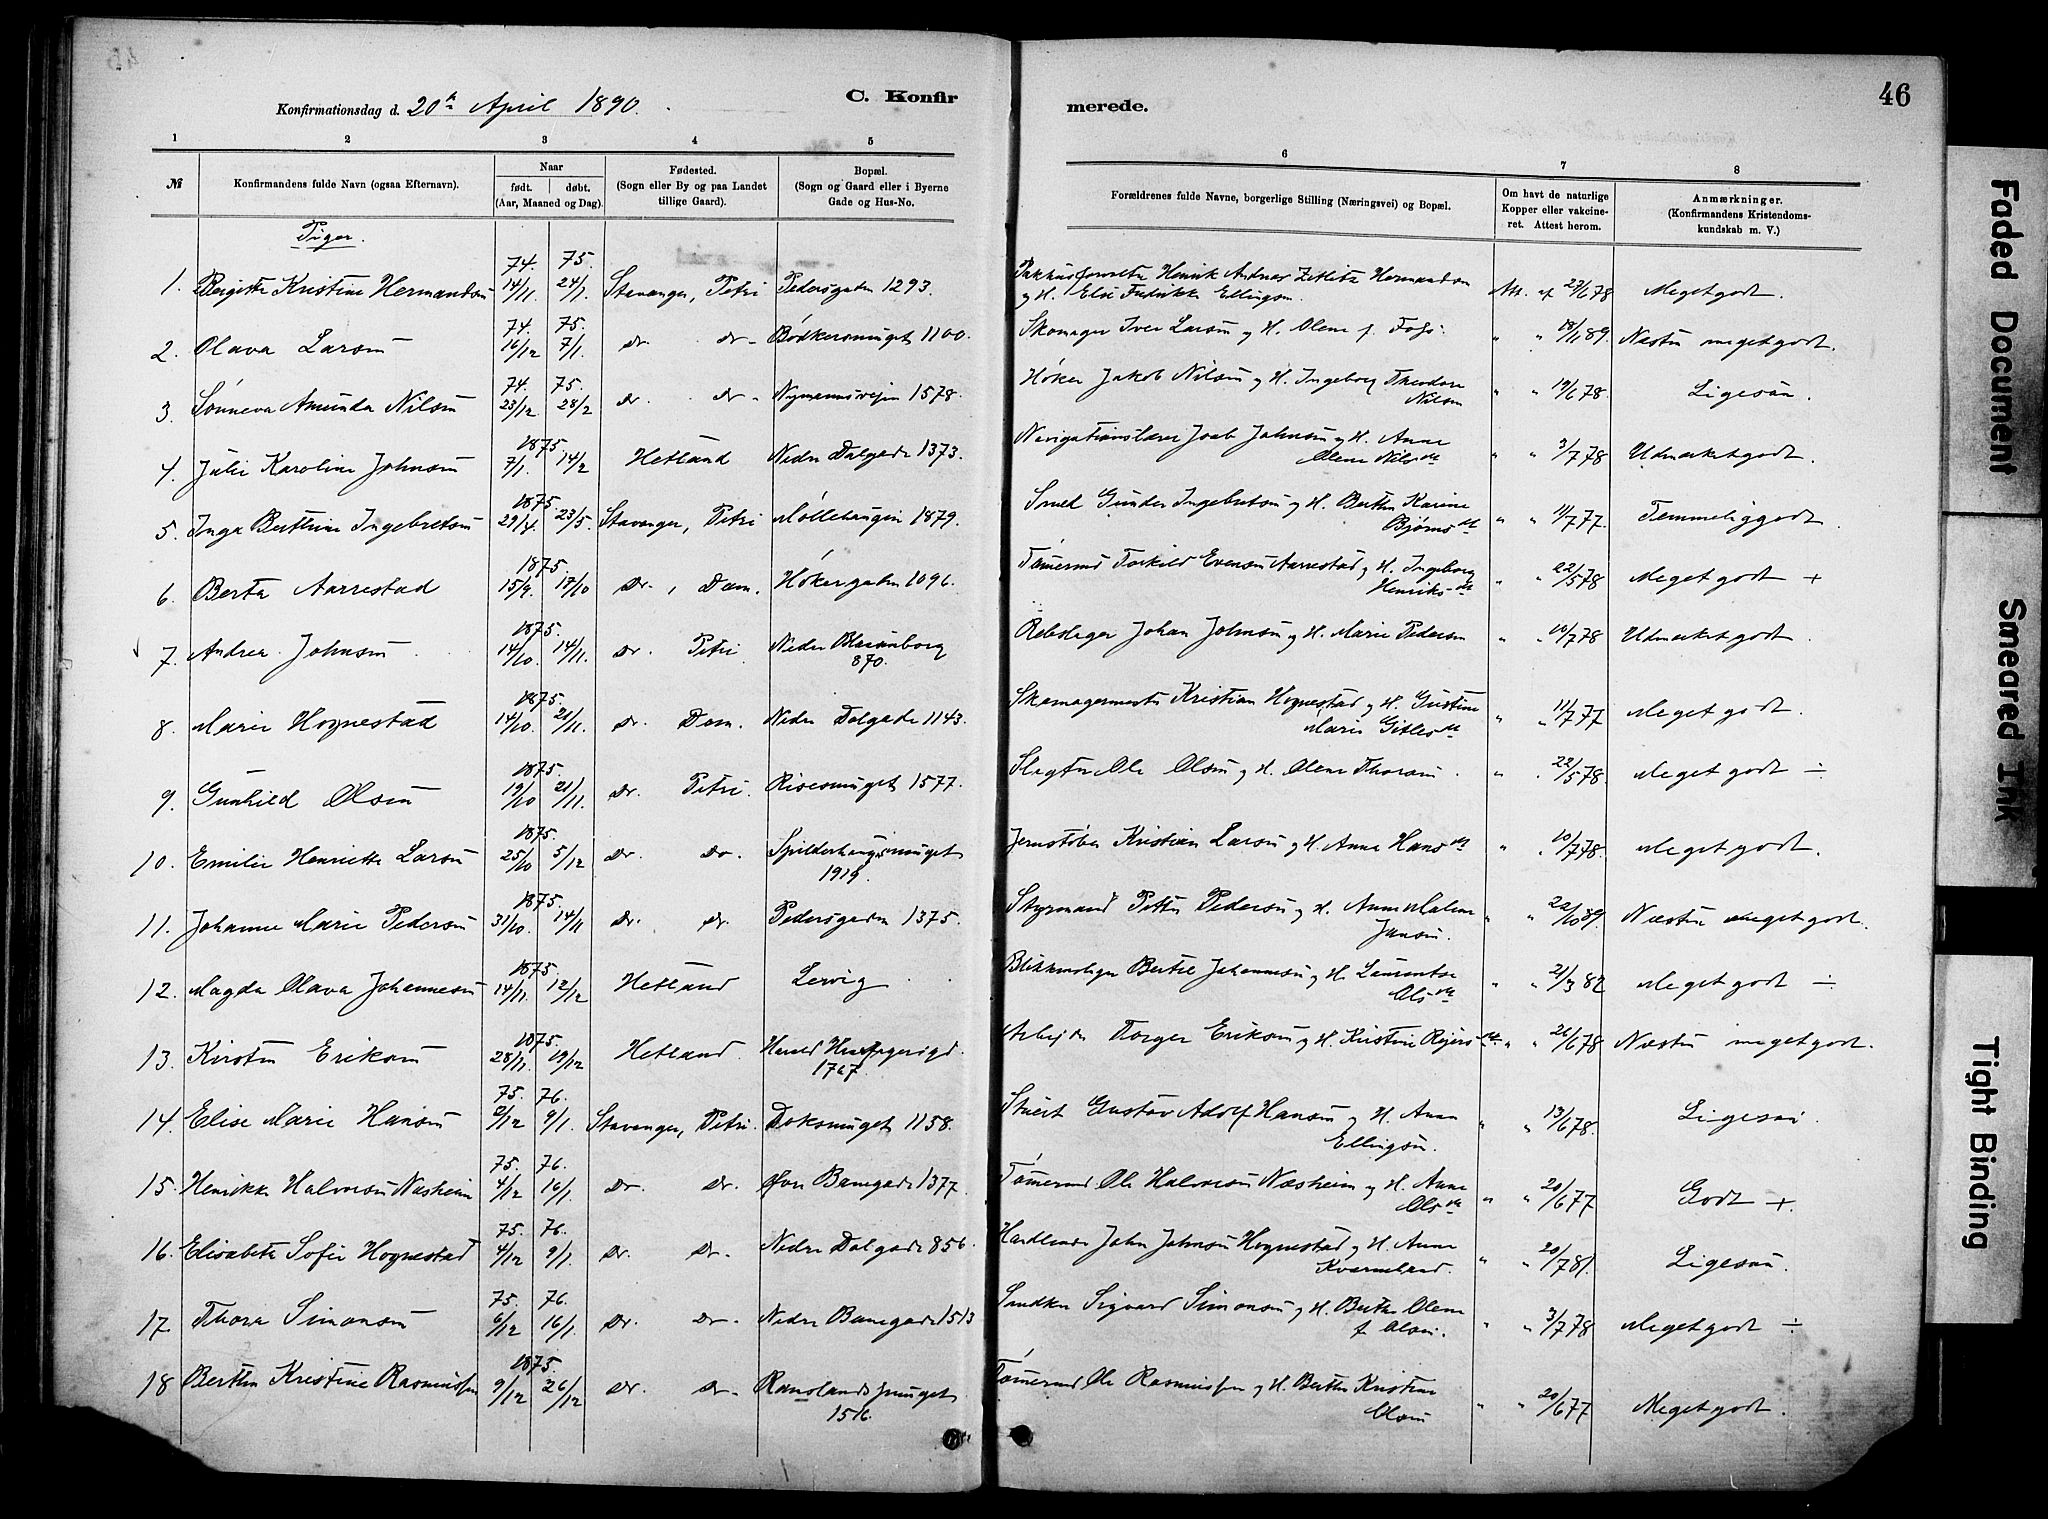 Konfirmationsdag d. 20de April 1890. C. Konfirmerede. 46
1 2 3 4 5 6 7 8
№ Konfirmandens fulde Navn (ogsaa Efternavn). Naar født. døbt. (Aar, Maaned og Dag). Fødested. (Sogn eller By og paa Landet tillige Gaard). Bopæl. (Sogn og Gaard eller i Byerne Gade og Hus-No. Forældrenes fulde Navne, borgerlige Stilling (Næringsvei) og Bopæl. Om havt de naturlige Kopper eller vakcineret. Attest herom. Anmærkninger. (Konfirmandens Kristendomskundskab m. V.)
Piger.
1. Bergitte Kristine Hermandsen 74. 14/11. 75. 24/1. Stavanger, Petri Pedersgaden 1293. Henrik Andreas Zetlitz Hermandsen
og H. Else Fredrikke Ellingsen. Att. af 27/6 78 Meget godt.
2. Olava Larsen 74. 16/12 75. 7/1. do. do. Bødkersmuget 1100. Skomager Iver Larsen og H. Olene f. " " 18/11 89. Næsten meget godt.
3. Sønneva Amunda Nilsen 74. 23/12. 75. 28/2 do. do. 1578. Høker Jakob Nilsen og H. Ingeborg Theodore
Nilsen " " 19/6 78. Ligesaa.
4. Julie Karoline Johnsen 1875. 7/1. 14/2 Hetland Nedre Dalgade 1373. Navigationslærer Joab Johnsen og H. Anne
Olene Nilsdt " " 3/7 78 Udmerket godt.
5. Inga Berthine Ingebretsen 1875. 29/4. 23/5. Stavanger, Petri Møllehaugen 1879. Smed Gunder Ingebretsen og H. Berthe Karine
Bjørnsdt " " 11/7 77. Temmelig godt.
6. Berta Aarrestad 1875. 15/9. 17/10 do., Dom. Høkergaden 1096. Tømermd Torkild Evensen Aarrestad og H. Ingeborg
Henriksdt " " 22/5 78 Meget godt +
7. Andrea Johnsen 1875. 14/10. 14/11. do. Petri. Nedre Blasenborg
870. Rebslager Johan Johnsen og H. Marie Pedersen " " 10/7 78 Udmerket godt.
8. Marie Hognestad 1875. 14/10. 21/11. do. Dom. Nedre Dalgade 1143. Skomagermester Kristian Hognestad og H. Gustine
Marie Gitlesdt " " 11/7 77 Meget godt.
9. Gunhild Olsen 1875. 19/10 21/11. do. Petri. Risesmuget 1577. Slagter Ole Olsen og H. Olene Thorsen. " " 22/5 78. Meget godt ÷
10. Emilie Henriette Larsen 1875. 25/10 5/12 do. do. Spilderhaugsmuget
1919. Jernstøber Kristian Larsen og H. Anne Hansdt " " 10/7 78. Meget godt.
11. Johanne Marie Pedersen 1875. 31/10. 14/11 do. do. Pedersgaden 1375. Styrmand Petter Pedersen og H. Anne Malene
Jansen. " " 22/10 89. Næsten meget godt.
12. Magda Olava Johannesen 1875. 14/11. 12/12 Hetland Lervig Blikkenslager Bertel Johannesen og H. Laurentse
Olsdt " " 21/3 82 Meget godt ÷
13. Kirsten Eriksen 1875. 28/11. 19/12 Hetland.
1767. Arbejder Torger Eriksen og H. Kristine " " 26/6 78 Næsten meget godt.
14. Elise Marie Hansen 75. 2/12 76. 9/1. Stavanger, Petri. Doksmuget 1158. Stuert Gustav Adolf Hansen og H. Anne
Ellingsen. " " 13/6 78. Ligesaa.
15. Henrikke Halvorsen Næsheim 75. 4/12 76. 16/1. do. do. Øvre Banegade 1377. Tømermd Ole Halvorsen Næsheim og H. Anne
Olsdt " " 20/6 77 Godt +.
16. Elisabeta Sofie Hognestad 75. 4/12 76. 9/1. do. do. Nedre Dalgade 856. John Johnsen Hognestad og H. Anne
Kvarneland. " " 20/7 81. Ligesaa.
17. Thora Simonsen 75. 6/12 76. 16/1. do. do. Nedre Banegade 1513 Snedker Sigvard Simonsen og H. Berthe Olene
f. Olsen. " " 3/7 78 Meget godt ÷
18 Berthe Kristine Rasmussen 1875. 9/12 26/12 do. do. Ramslandsmuget
1516. Tømermd Ole Rasmussen og H. Berthe Kristine
Olsen " " 20/6 77 Meget godt.
Faded Document
Smeared Ink
Tight Binding